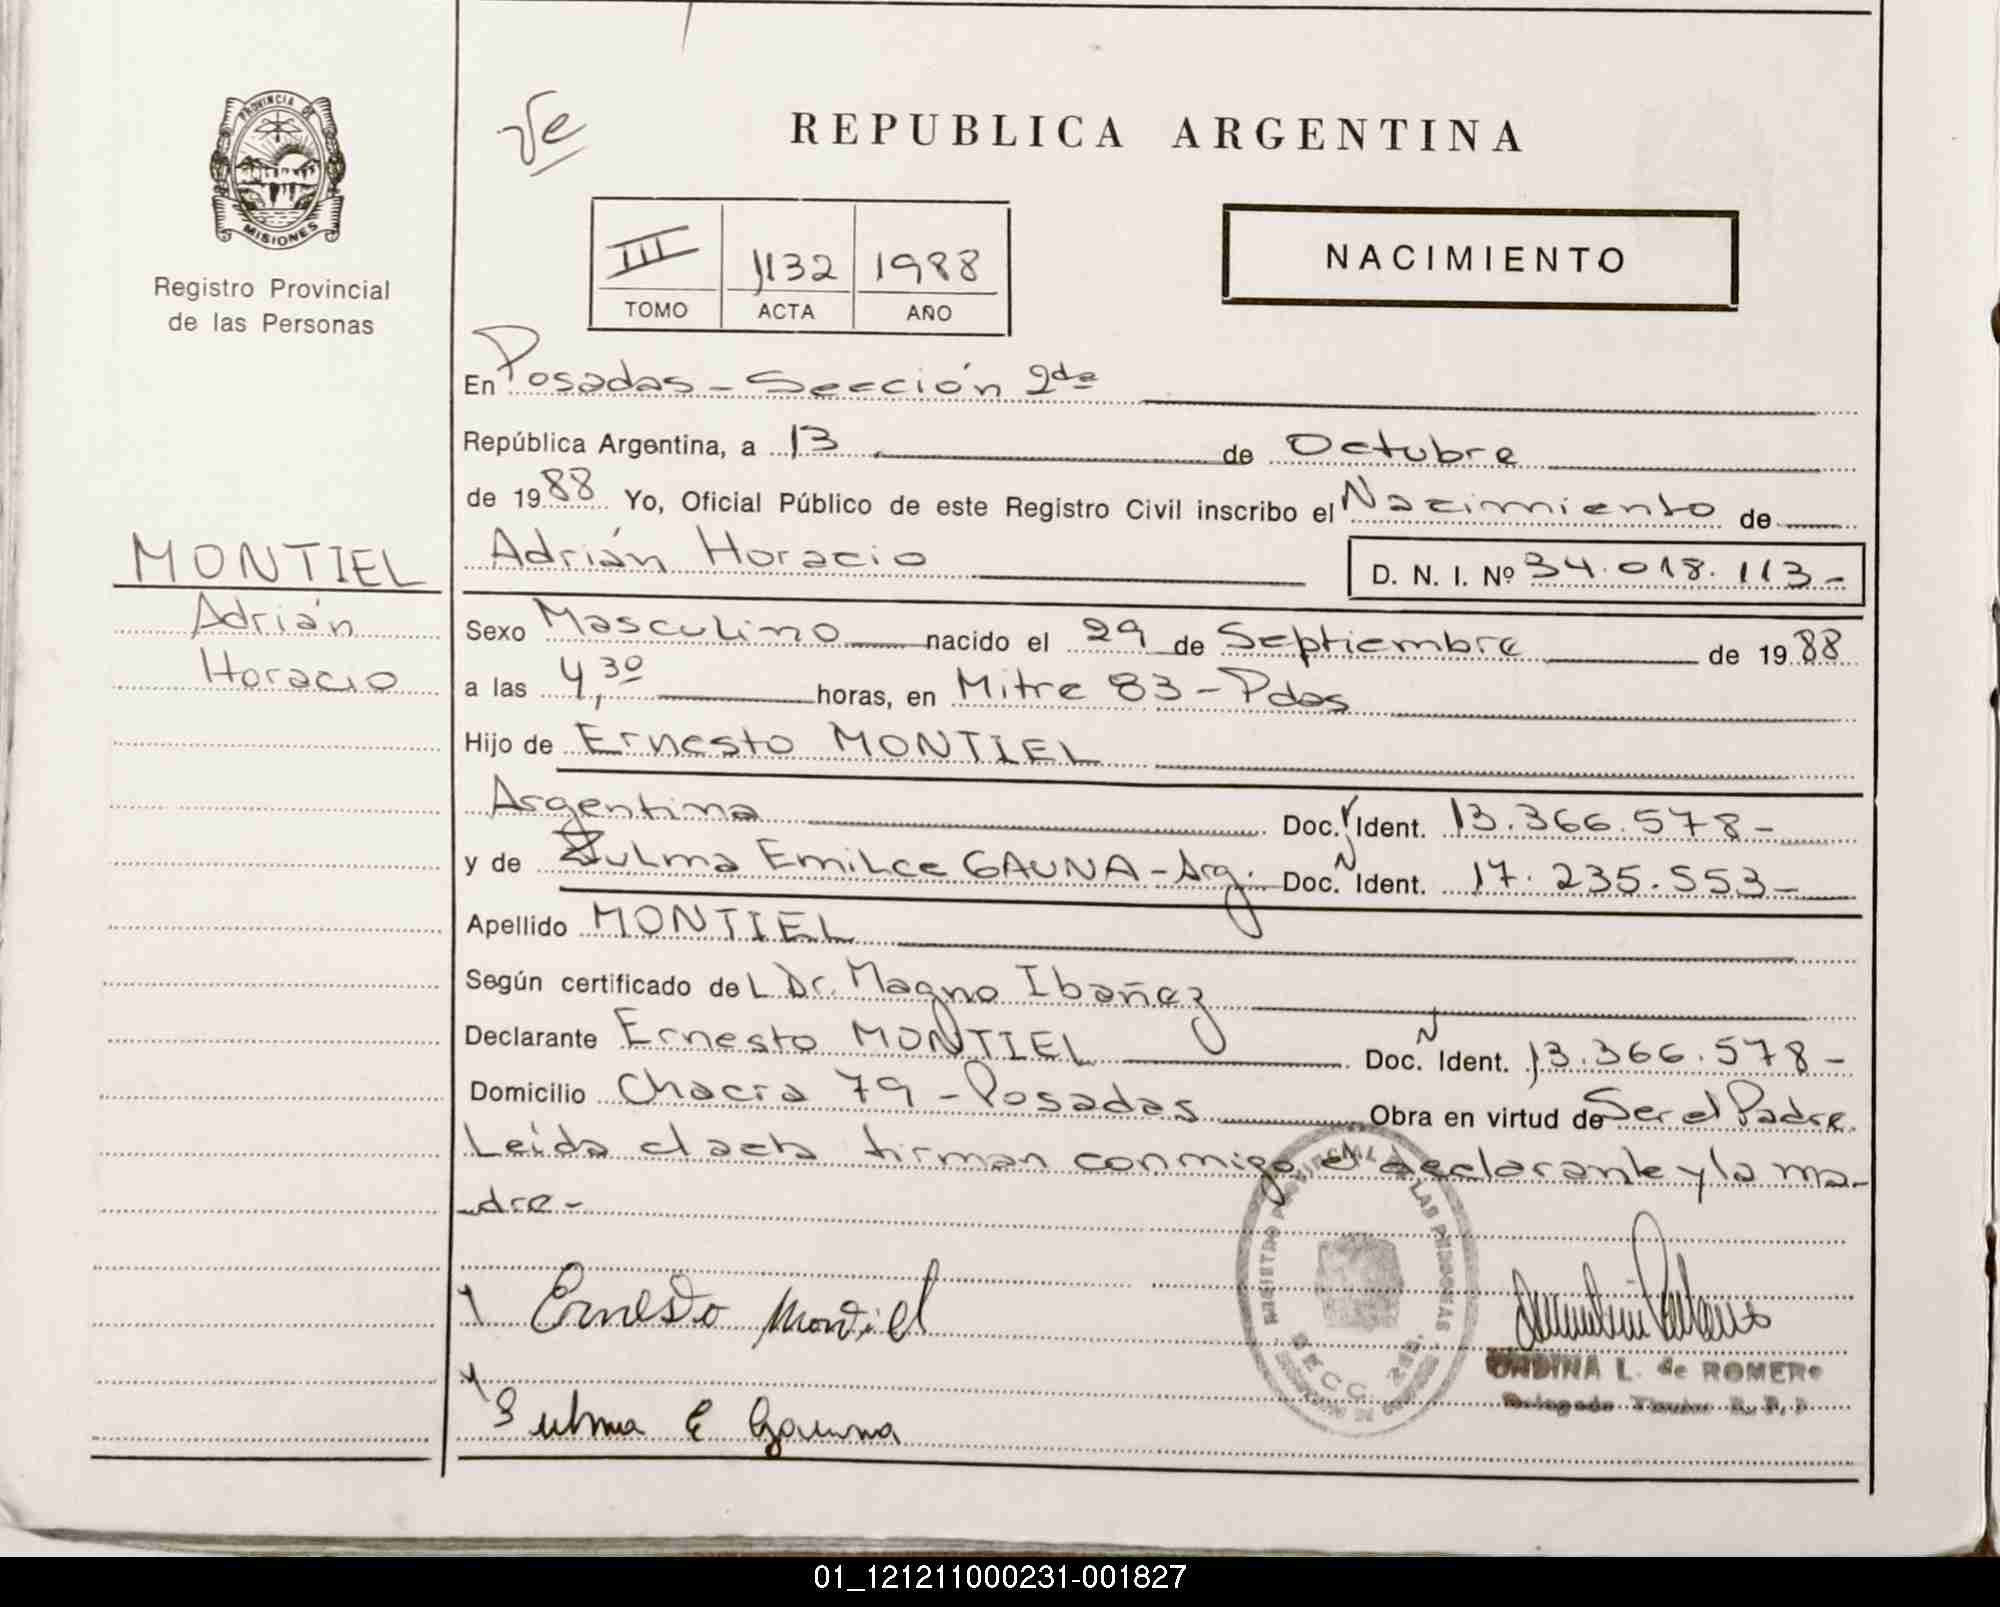 REPUBLICA ARGENTINA
PROVINCIA DE
MISIONES
Registro Provincial
de las Personas
III 1132 1988
TOMO ACTA AÑO
NACIMIENTO
En Posadas - Sección 2da
República Argentina, a 13 de Octubre
de 1988 Yo, Oficial Público de este Registro Civil inscribo el Nacimiento de
MONTIEL
Adrián
Horacio
Adrián Horacio D. N. I. Nº 34.018.113-
Sexo Masculino nacido el 29 de Septiembre de 1988
a las 4,30 horas, en Mitre 83 - Pdas
Hijo de Ernesto MONTIEL
Argentina Doc. Ident. 13.366.578-
y de Zulma Emilce GAUNA - Arg. Doc. N Ident. 17.235.553-
Apellido MONTIEL
Según certificado del Dr. Magno Ibañez
Declarante Ernesto MONTIEL Doc. N Ident. 13.366.578-
Domicilio Chacra 79 - Posadas Obra en virtud de Ser el Padre
Leída el acta firman conmigo el declarante y la ma-
dre-
Ernesto Montiel
Zulma E Gauna
REGISTRO PROVINCIAL DE LAS PERSONAS
SECC. 2da.
ONDINA L. de ROMERO
Delegado Titular R. P. P.
01_121211000231-001827